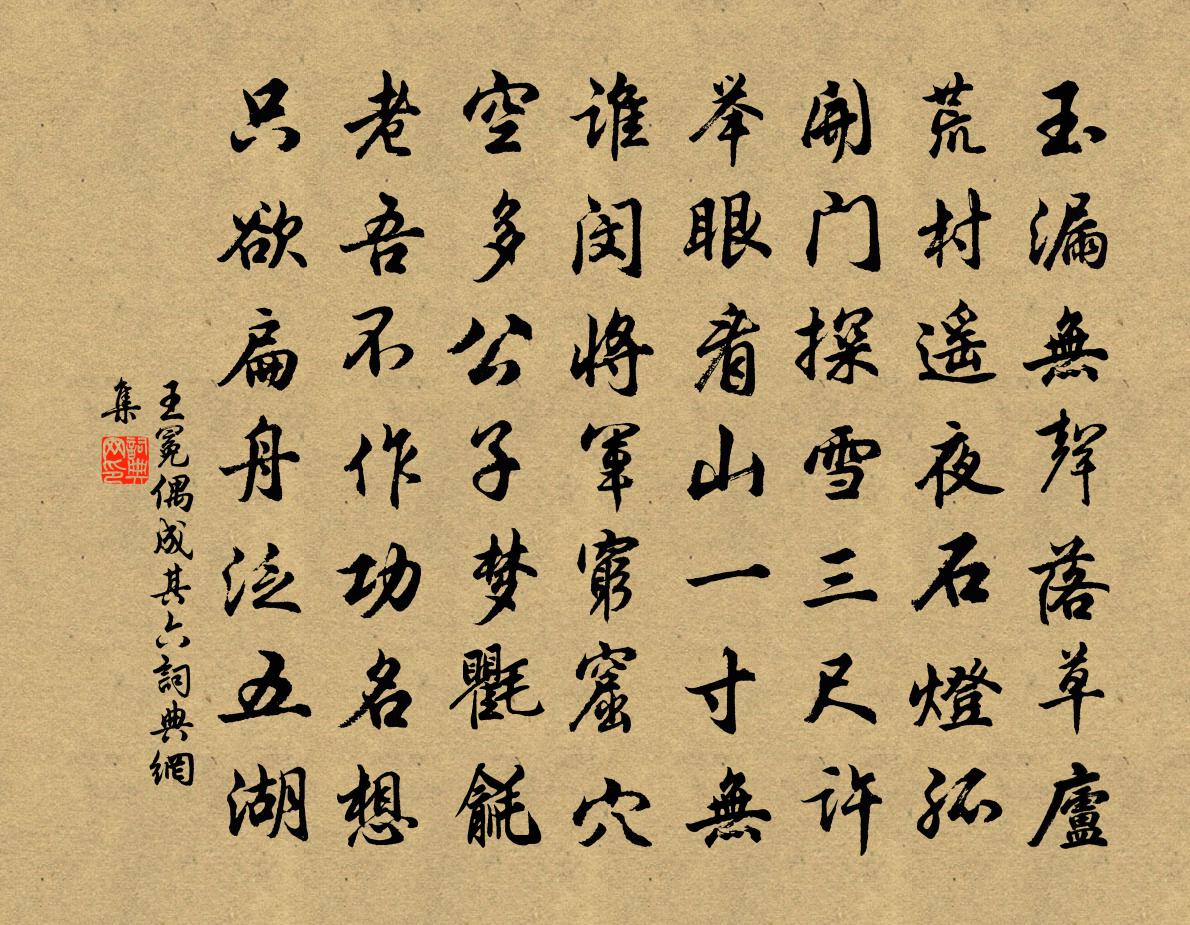 玉漏無聲落草廬
荒村遥夜石燈孤
開门探雪三尺許
举眼看山一寸無
谁闵将軍窮窟穴
空多公子梦氍毹
老吾不作功名想
只欲扁舟泛五湖
王冕偶成其六詞典網
集
詞典网印